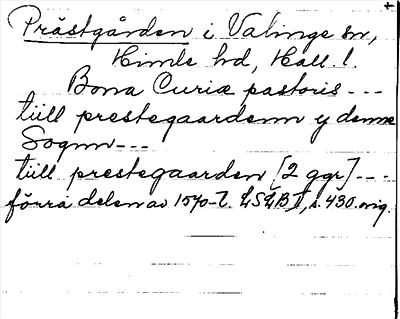 Prästgården i Valinge sn,
Himle hd, Hall. l.
Bona Curiæ pastoris ---
tiill prestegaardenn y denne
Sognn ---
tiill prestegaarden [2 ggr] ---
förra delen av 1570-t. LSLB I, s. 430. orig.